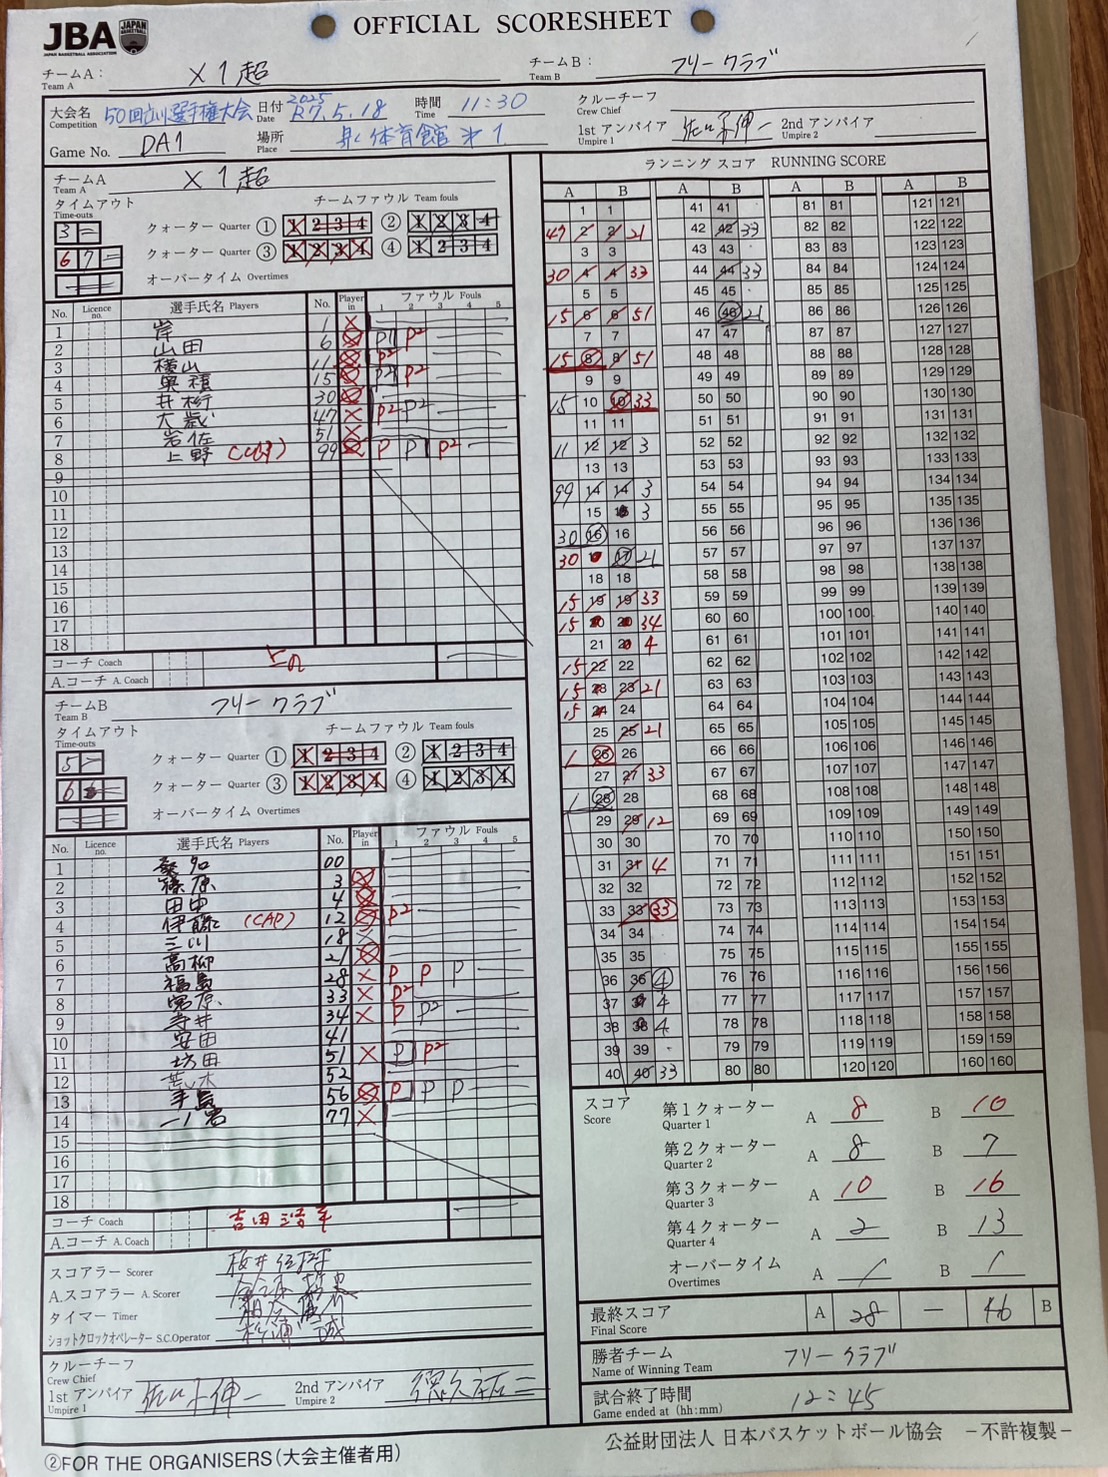 JBA
JAPAN BASKETBALL ASSOCIATION
JAPAN BASKETBALL
OFFICIAL SCORESHEET
チームA: Team A X1超
チームB: Team B フリークラブ
大会名 Competition 50回立川選手権大会 日付 Date 2025 R7.5.18 時間 Time 11:30
Game No. DA1 場所 Place 体育館 1
クルーチーフ Crew Chief
1st アンパイア Umpire 1 2nd アンパイア Umpire 2
チームA Team A X1超
タイムアウト Time-outs チームファウル Team fouls
3
クォーター Quarter ① 1 2 3 4 ② 1 2 3 4
6 7
クォーター Quarter ③ 1 2 3 4 ④ 1 2 3 4
オーバータイム Overtimes
No. Licence no. 選手氏名 Players No. Player in ファウル Fouls 1 2 3 4 5
1 岸 1 X
2 山田 6 P1 P2
3 横山 11 P2
4 15 P2 P2
5 30
6 47 P2 P2
7 岩佐 51 X
8 上野 (CAP) 99 P P P2
9
10
11
12
13
14
15
16
17
18
コーチ Coach 上の
A.コーチ A. Coach
チームB Team B フリークラブ
タイムアウト Time-outs チームファウル Team fouls
5
クォーター Quarter ① 1 2 3 4 ② 1 2 3 4
6
クォーター Quarter ③ 1 2 3 4 ④ 1 2 3 4
オーバータイム Overtimes
No. Licence no. 選手氏名 Players No. Player in ファウル Fouls 1 2 3 4 5
1 00
2 篠原 3
3 田中 4
4 伊藤 (CAP) 12 P2
5 三川 18
6 高柳 21
7 福島 28 X P P P
8 33 X P2
9 寺井 34 X P P2
10 安田 41
11 坊田 51 X P P2
12 荒木 52
13 56 P P P
14 77 X
15
16
17
18
コーチ Coach 吉田
A.コーチ A. Coach
スコアラー Scorer
A.スコアラー A. Scorer
タイマー Timer
ショットクロックオペレーター S.C.Operator
クルーチーフ Crew Chief
1st アンパイア Umpire 1 2nd アンパイア Umpire 2
②FOR THE ORGANISERS(大会主催者用)
ランニング スコア RUNNING SCORE
A B A B A B A B
1 1 41 41 81 81 121 121
47 2 2 21 42 42 33 82 82 122 122
3 3 43 43 83 83 123 123
30 4 4 33 44 44 33 84 84 124 124
5 5 45 45 85 85 125 125
15 6 6 51 46 46 21 86 86 126 126
7 7 47 47 87 87 127 127
15 8 8 51 48 48 88 88 128 128
9 9 49 49 89 89 129 129
15 10 10 33 50 50 90 90 130 130
11 11 51 51 91 91 131 131
11 12 12 3 52 52 92 92 132 132
13 13 53 53 93 93 133 133
99 14 14 3 54 54 94 94 134 134
15 15 3 55 55 95 95 135 135
30 16 16 56 56 96 96 136 136
30 17 17 21 57 57 97 97 137 137
18 18 58 58 98 98 138 138
15 19 19 33 59 59 99 99 139 139
15 20 20 34 60 60 100 100 140 140
21 21 4 61 61 101 101 141 141
15 22 22 62 62 102 102 142 142
15 23 23 21 63 63 103 103 143 143
15 24 24 64 64 104 104 144 144
25 25 21 65 65 105 105 145 145
1 26 26 66 66 106 106 146 146
27 27 33 67 67 107 107 147 147
1 28 28 68 68 108 108 148 148
29 29 12 69 69 109 109 149 149
30 30 70 70 110 110 150 150
31 31 4 71 71 111 111 151 151
32 32 72 72 112 112 152 152
33 33 33 73 73 113 113 153 153
34 34 74 74 114 114 154 154
35 35 75 75 115 115 155 155
36 36 4 76 76 116 116 156 156
37 37 4 77 77 117 117 157 157
38 38 4 78 78 118 118 158 158
39 39 79 79 119 119 159 159
40 40 33 80 80 120 120 160 160
スコア Score
第1クォーター Quarter 1 A 8 B 10
第2クォーター Quarter 2 A 8 B 7
第3クォーター Quarter 3 A 10 B 16
第4クォーター Quarter 4 A 2 B 13
オーバータイム Overtimes A / B /
最終スコア Final Score A 28 — 46 B
勝者チーム Name of Winning Team フリークラブ
試合終了時間 Game ended at (hh:mm) 12:45
公益財団法人 日本バスケットボール協会 −不許複製−